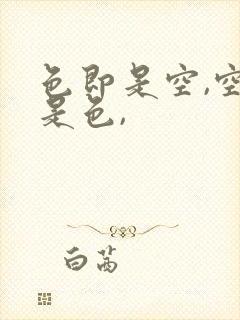 色即是空,空
是色,
白茜